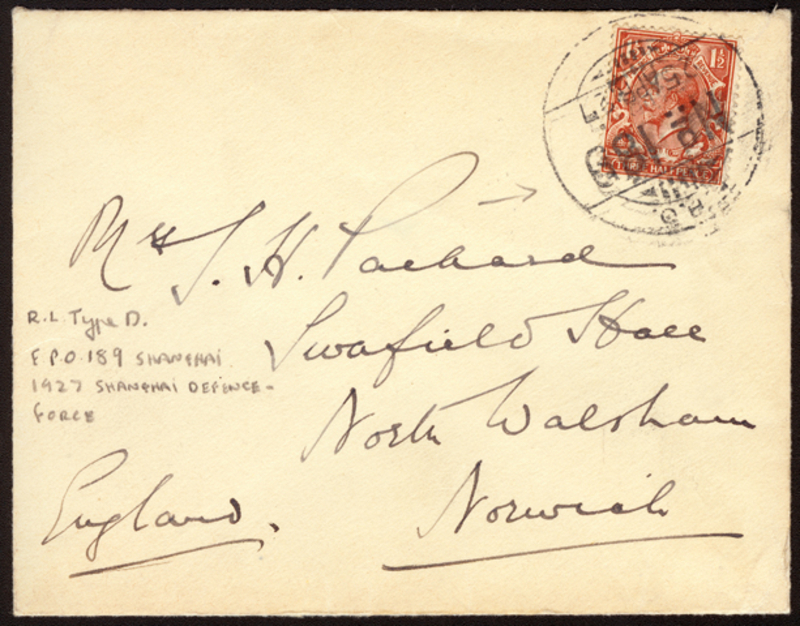 1½
THREE HALF PENCE
Mrs S. H. Packard
Swafield Hall
North Walsham
Norwich
England.
R.L. Type D.
F.P.O. 189 SHANGHAI
1927 SHANGHAI DEFENCE-
FORCE